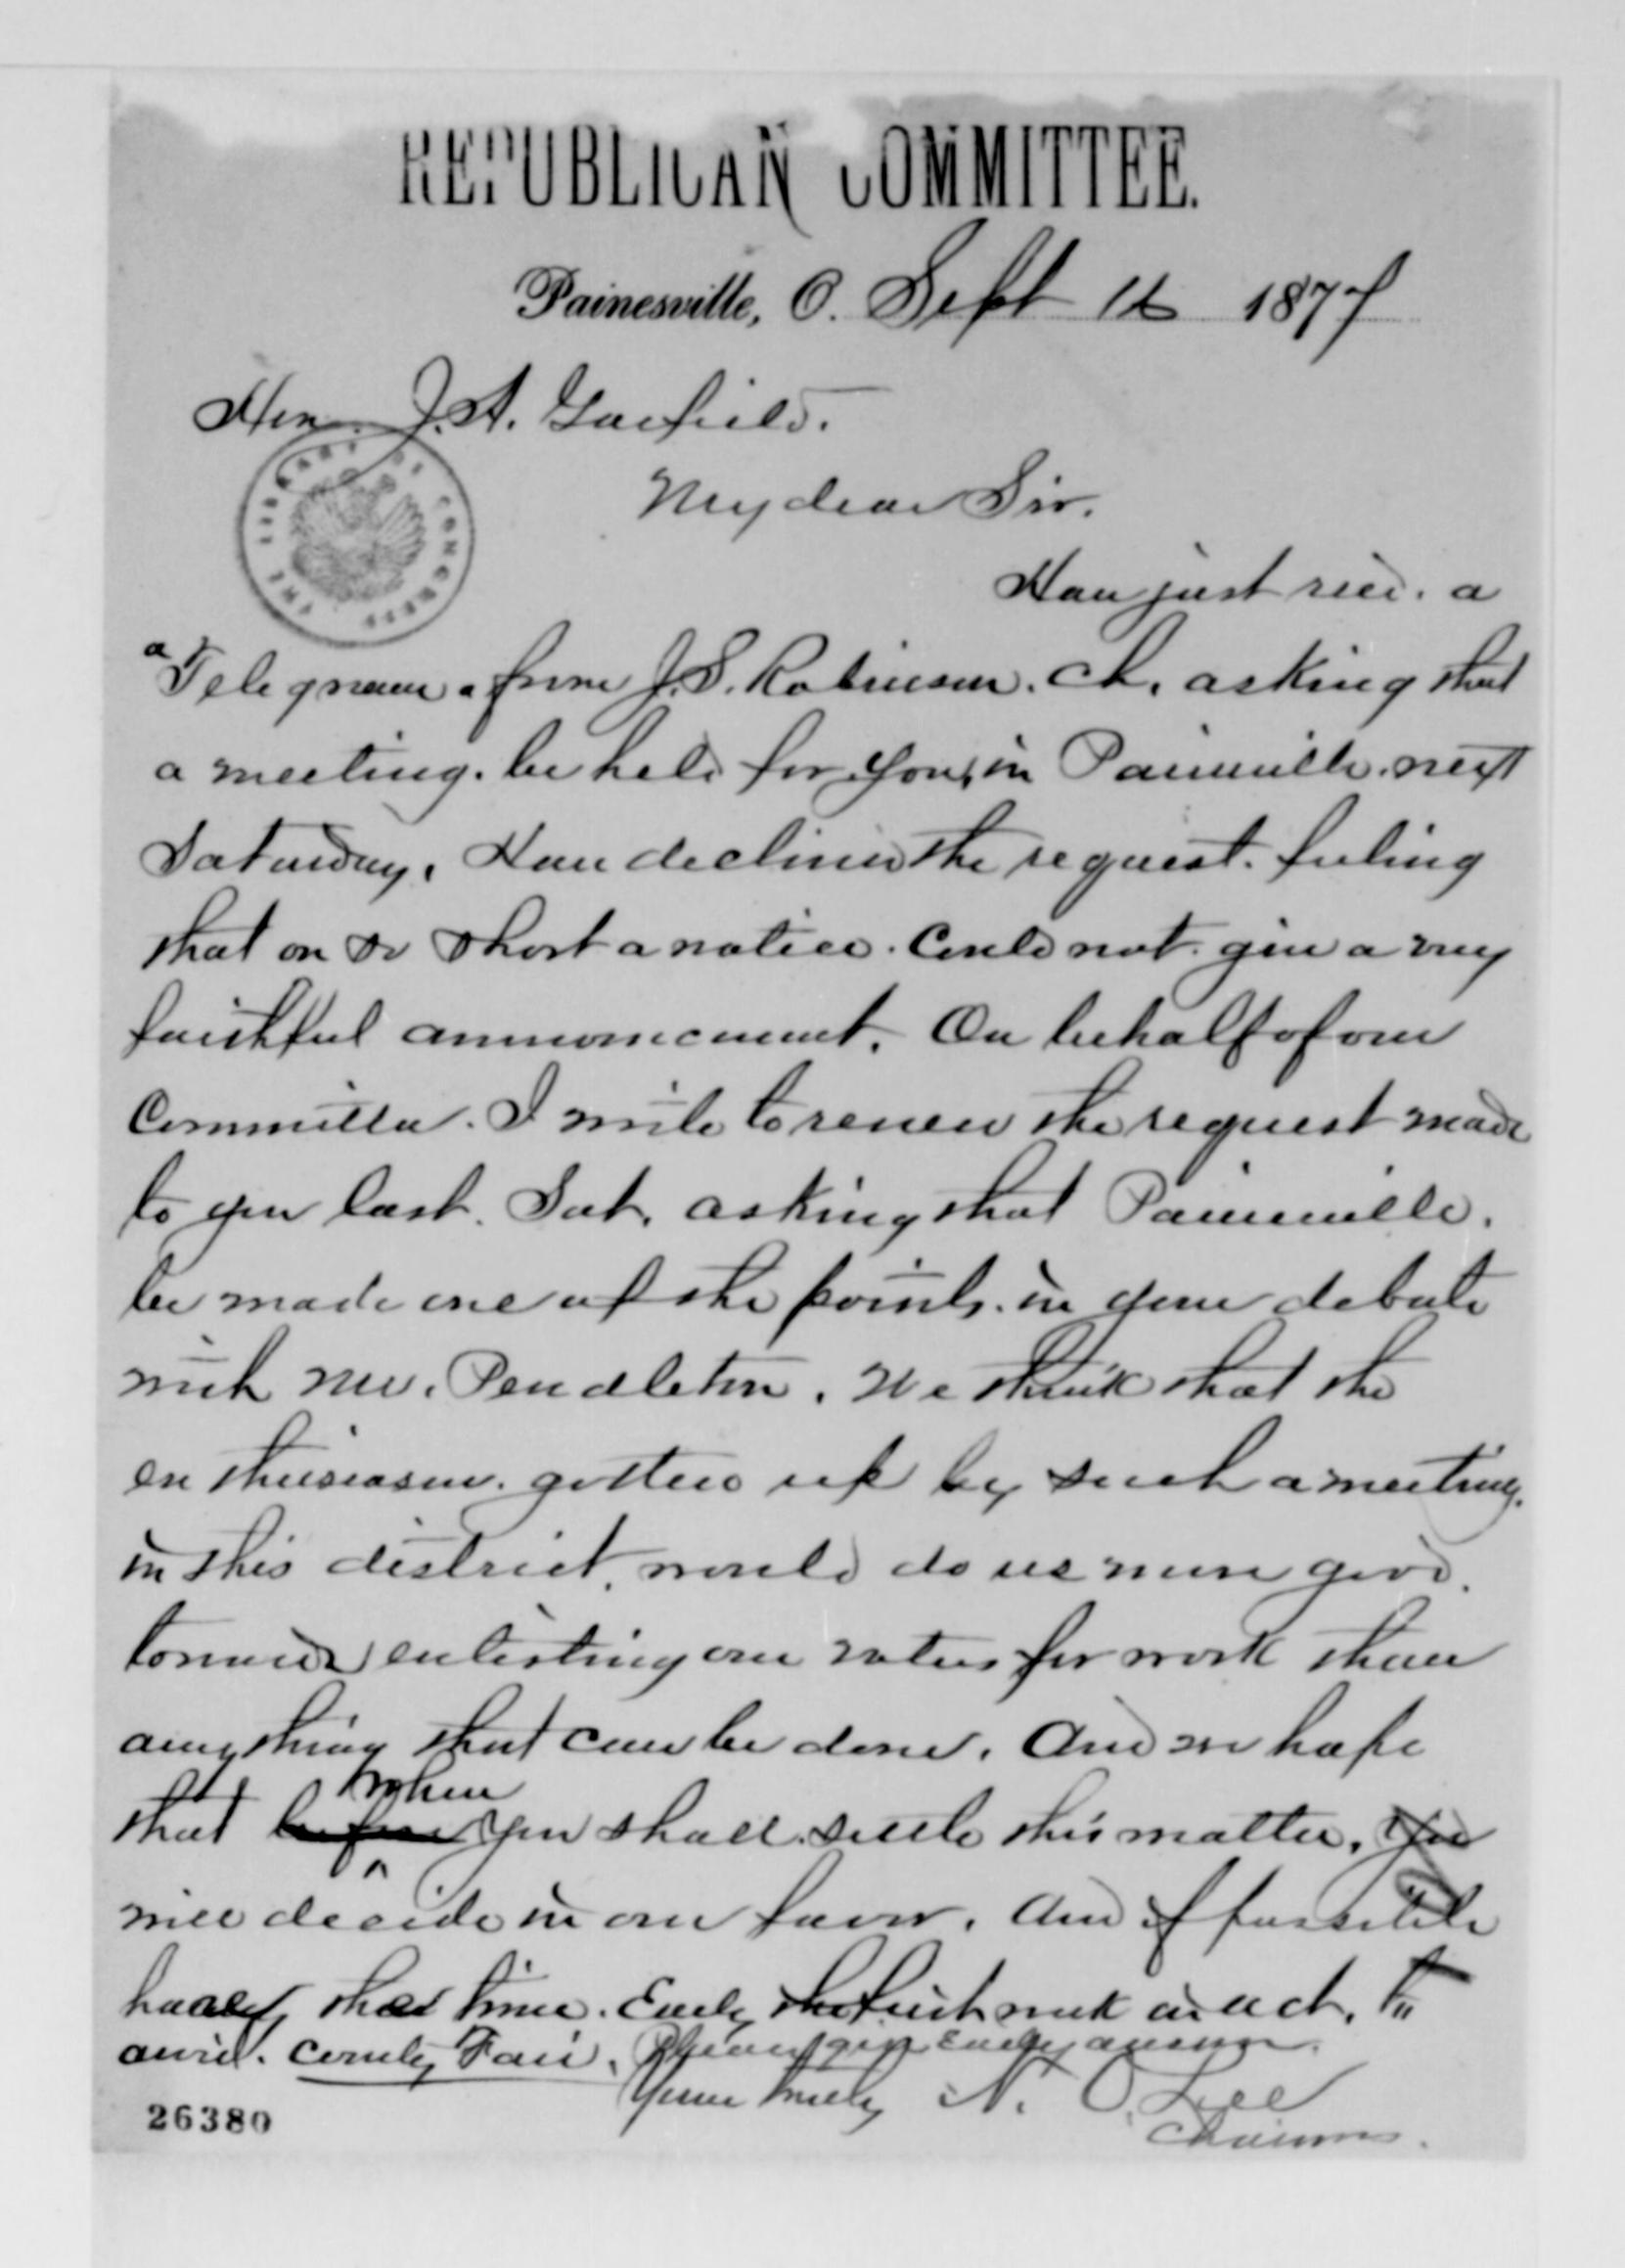 REPUBLICAN COMMITTEE.
Painesville, O. Sept 12 1877
Hon. J. A. Garfield.
My dear Sir.
Have just recd. a
a Telegram from J. S. Robinson. Ch. asking that
a meeting. be held for you, in Painesville. next
Saturday. Have declined the request. feeling
that on so short a notice. Could not. give a very
faithful announcement. On behalf of our
Committee. I write to renew the request made
to you last. Sat. asking that Painesville.
be made one of the points. in your debate
with Mr. Pendleton. We think that the
enthusiasm. gotten up by such a meeting.
in this district. would do us more good.
towards enlisting our voters for work than
anything that can be done. And we hope
when
that before you shall. settle this matter, you
will decide in our favor. And if possible
have that time. Early the first week in Oct. to
avoid. County Fair. Please give early answer.
Yours truly N. O. Lee
Chairman.
26380
THE LIBRARY OF CONGRESS